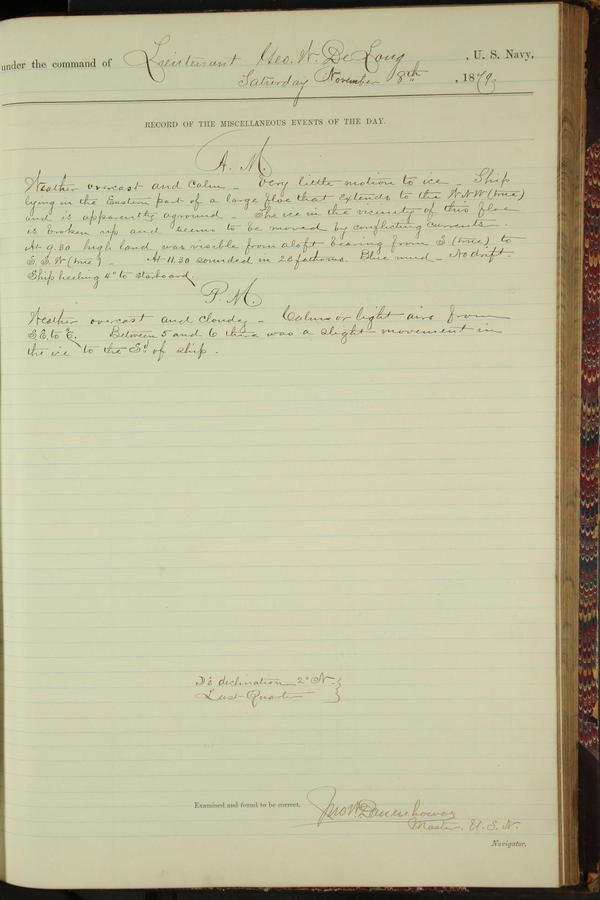 under the command of Lieutenant Geo. W. De Long, U. S. Navy,
Saturday November 8th, 1879
RECORD OF THE MISCELLANEOUS EVENTS OF THE DAY.
A. M.
Weather overcast and calm - Very little motion to ice - Ship
lying in the Eastern part of a large floe that extends to the WNW (true)
and is apparently aground - The ice in the vicinity of this floe
is broken up and seems to be moved by conflicting currents.
At 9.30 high land was visible from aloft bearing from S (true) to
S.S.W (true) - At 11.30 sounded in 28 fathoms. Blue mud - No drift.
Ship heeling 4° to starboard.
P. M.
Weather overcast and cloudy - Calms or light airs from
S.E. to E. Between 5 and 6 there was a slight movement in
the ice to the Sd of ship.
declination 2° N. }
Last Quarter }
Examined and found to be correct.
Jno W Danenhower
Master, U. S. N.
Navigator.